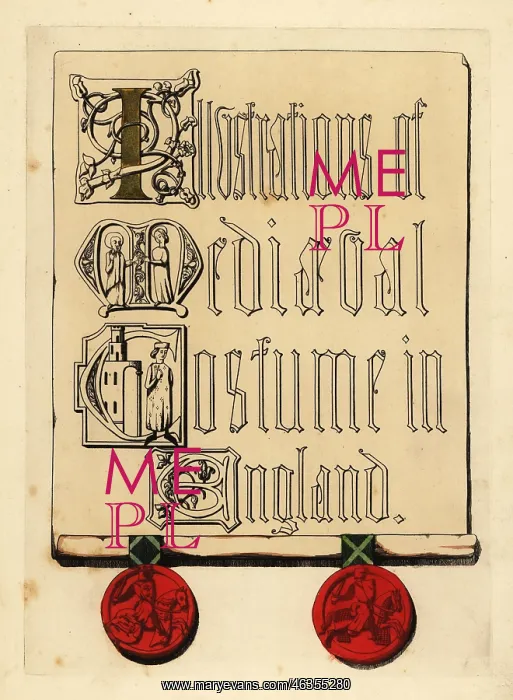 Illustrations of
ME
PL
Mediæval
Costume in
ME
PL
England.
www.maryevans.com/46955280